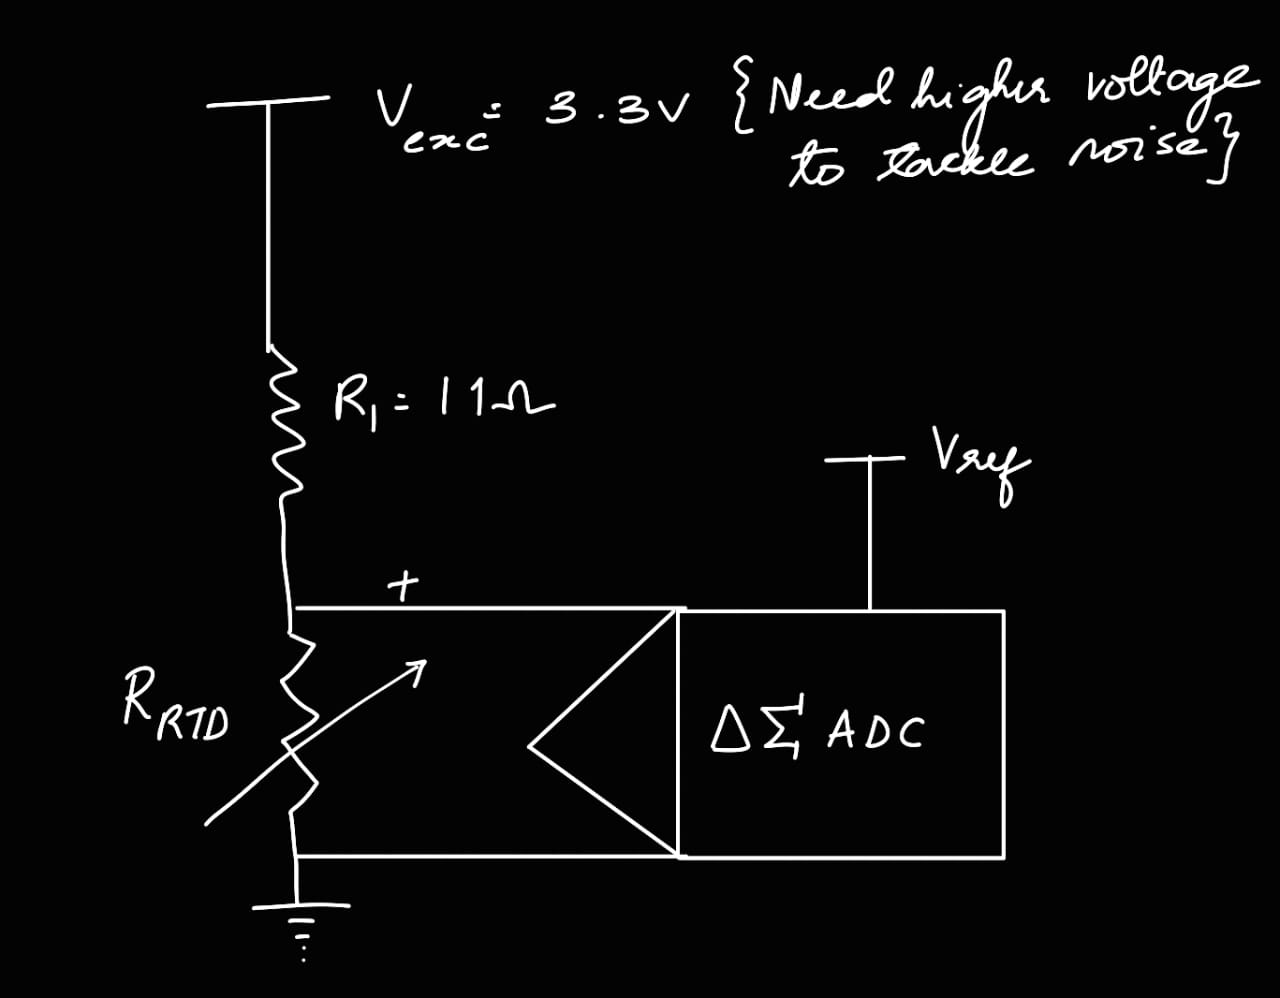 Vexc = 3.3V {Need higher voltage
to tackle noise}
R1 = 11Ω
Vref
+
RRTD
ΔΣ ADC